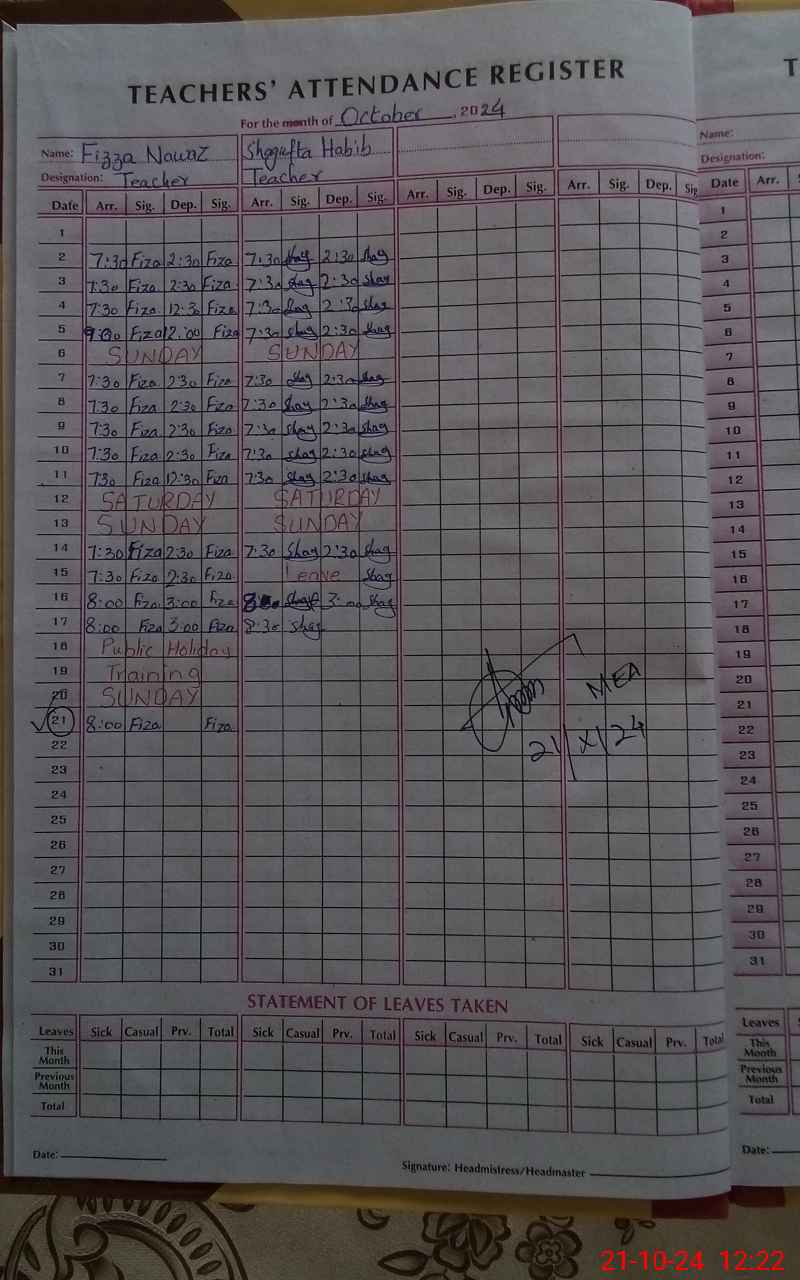 TEACHERS' ATTENDANCE REGISTER
For the month of October, 2024
Name: Fizza Nawaz Shagufta Habib
Designation: Teacher Teacher
Date Arr. Sig. Dep. Sig. Arr. Sig. Dep. Sig. Arr. Sig. Dep. Sig. Arr. Sig. Dep. Sig
1
2 7:30 Fiza 2:30 Fiza 7:30 Shag 2:30 Shag
3 7:30 Fiza 2:30 Fiza 7:30 Shag 2:30 Shag
4 7:30 Fiza 12:30 Fiza 7:30 Shag 2:30 Shag
5 Fiza 12:00 Fiza 7:30 Shag 2:30 Shag
6 SUNDAY SUNDAY
7 7:30 Fiza 2:30 Fiza 7:30 Shag 2:30 Shag
8 7:30 Fiza 2:30 Fiza 7:30 Shag 2:30 Shag
9 7:30 Fiza 2:30 Fiza 7:30 Shag 2:30 Shag
10 7:30 Fiza 2:30 Fiza 7:30 Shag 2:30 Shag
11 7:30 Fiza 12:30 Fiza 7:30 Shag 2:30 Shag
12 SATURDAY SATURDAY
13 SUNDAY SUNDAY
14 7:30 Fiza 2:30 Fiza 7:30 Shag 2:30 Shag
15 7:30 Fiza 2:30 Fiza Leave Shag
16 8:00 Fiza 3:00 Fiza Shag 3:00 Shag
17 8:00 Fiza 3:00 Fiza 8:30 Shag
18 Public Holiday
19 Training
20 SUNDAY
21 8:00 Fiza Fiza
MEA
21/X/24
22
23
24
25
26
27
28
29
30
31
STATEMENT OF LEAVES TAKEN
Leaves Sick Casual Prv. Total Sick Casual Prv. Total Sick Casual Prv. Total Sick Casual Prv. Total
This Month
Previous Month
Total
Date:
Signature: Headmistress/Headmaster
T
Name:
Designation:
Date Arr. S
1
2
3
4
5
6
7
8
9
10
11
12
13
14
15
16
17
18
19
20
21
22
23
24
25
26
27
28
29
30
31
Leaves
This Month
Previous Month
Total
Date:
21-10-24 12:22